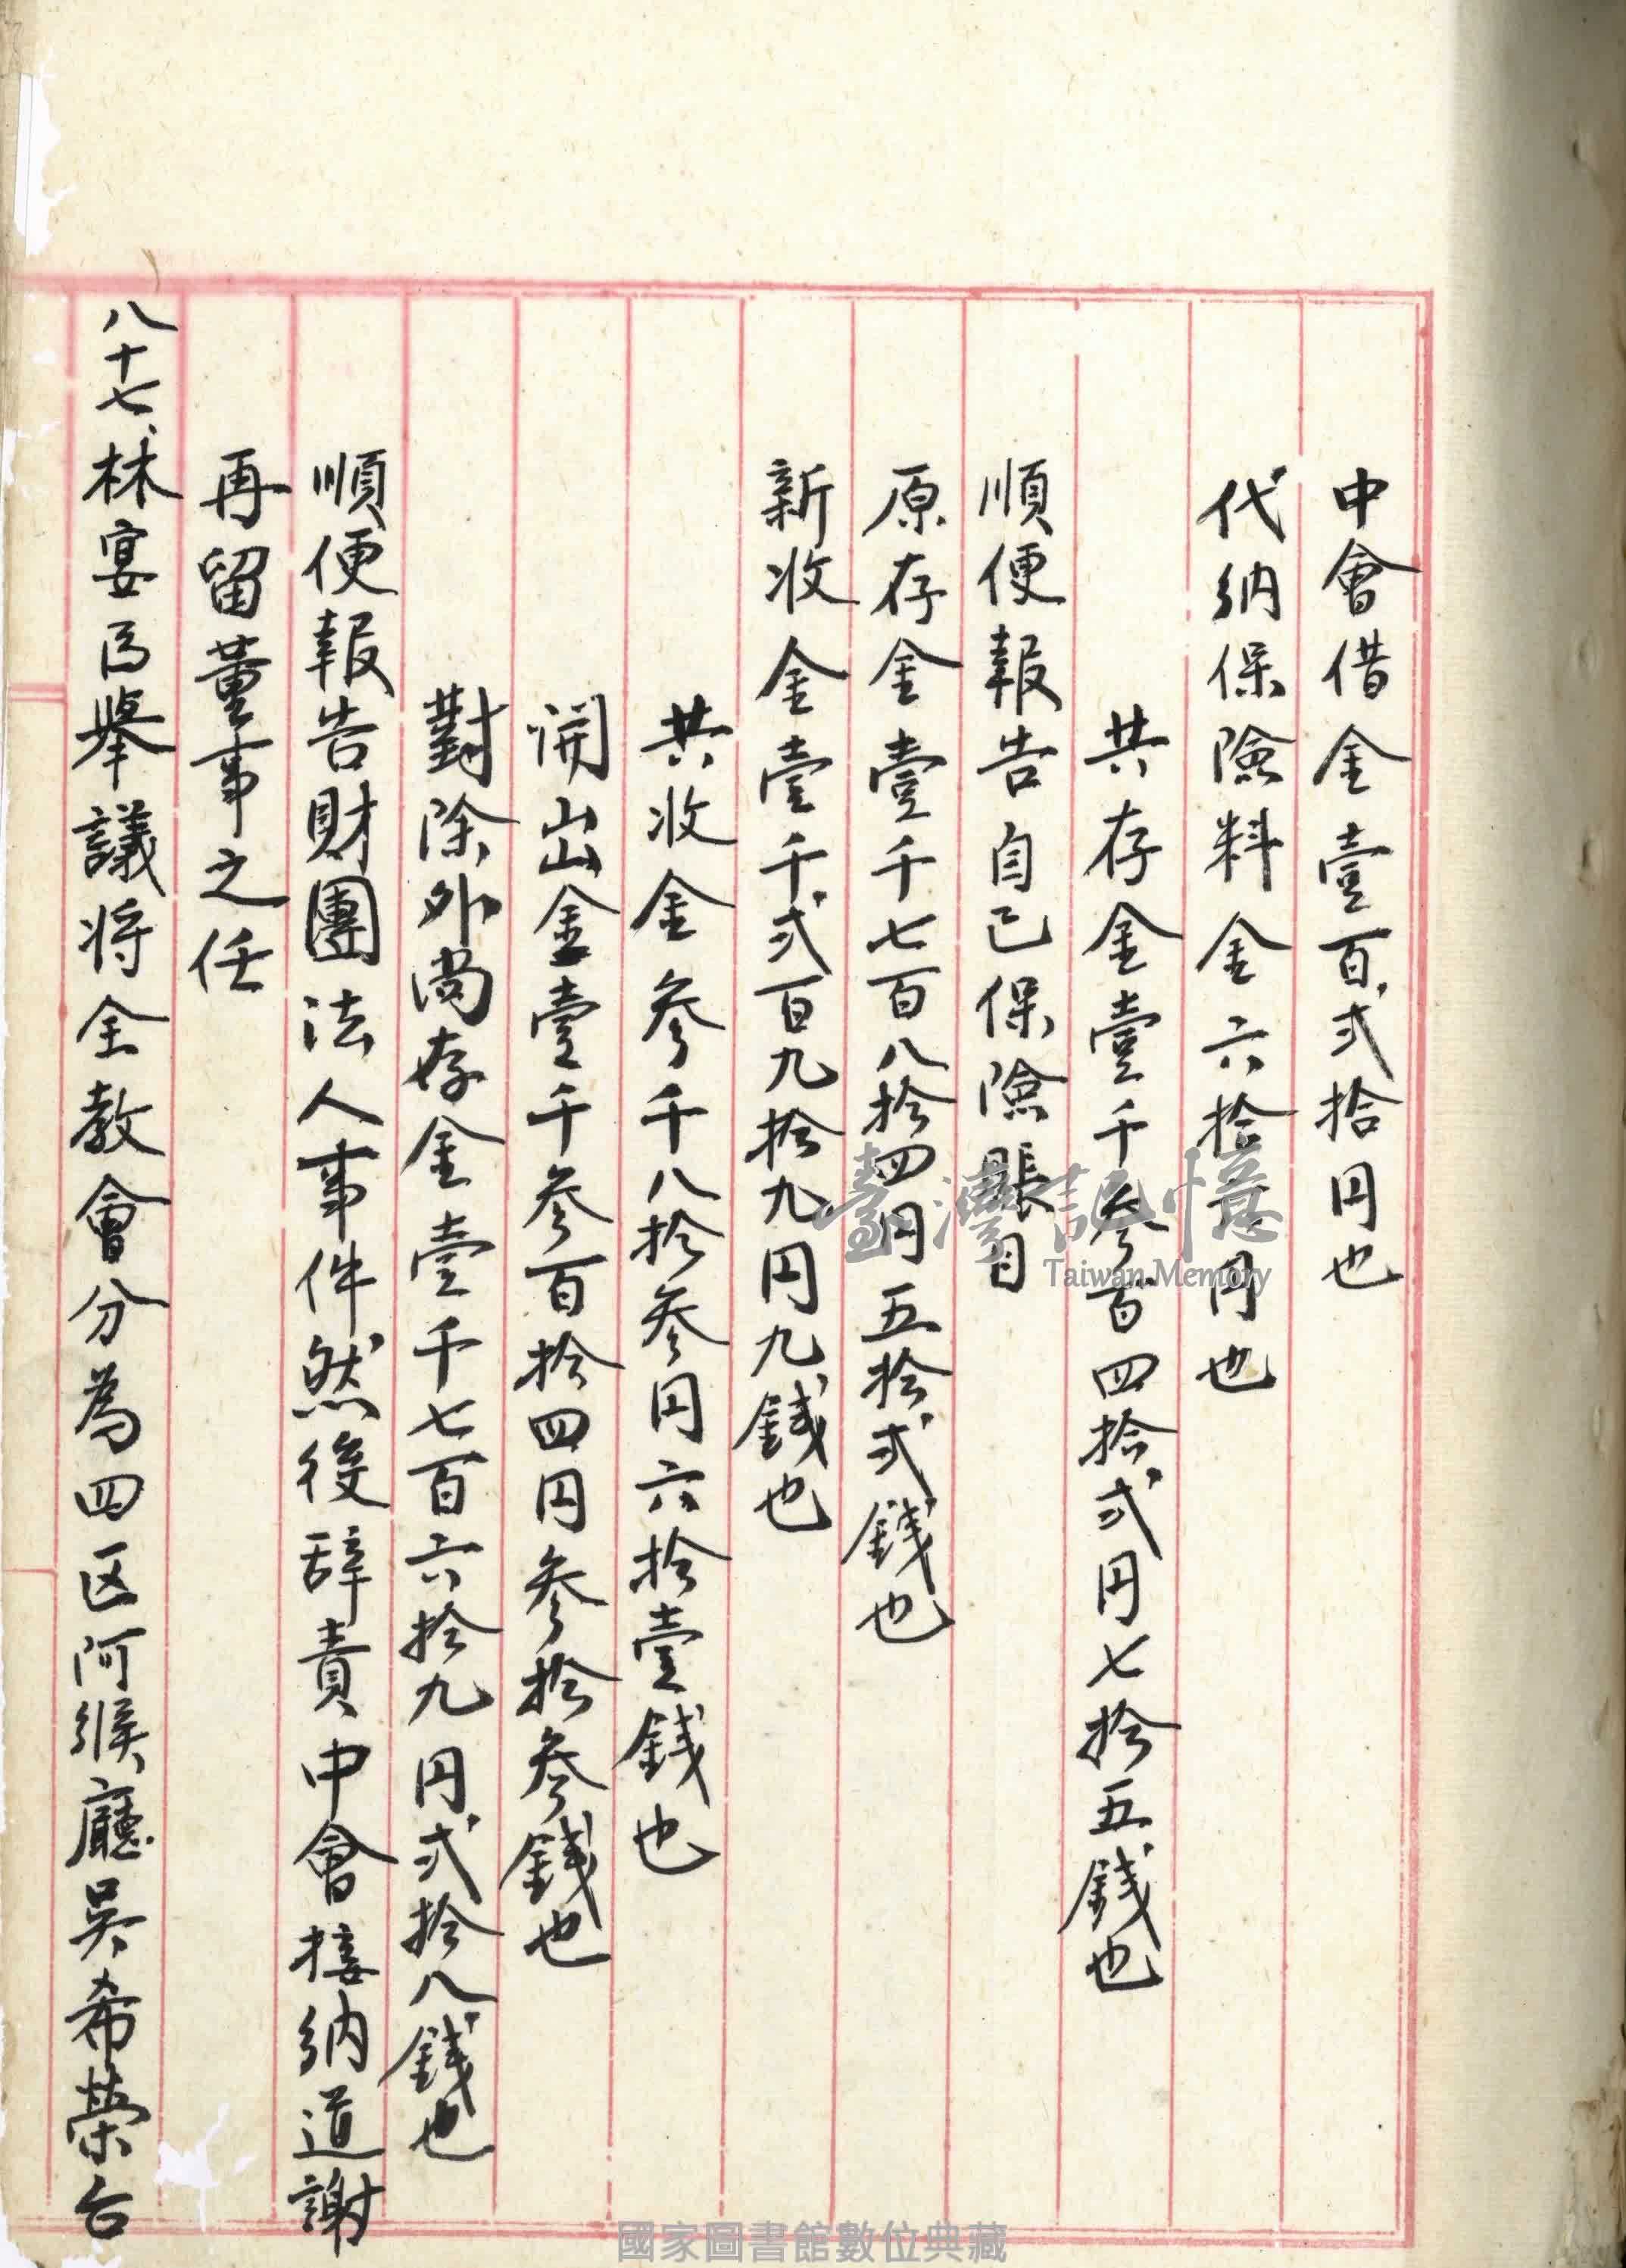 中會借金壹百弍拾円也
代納保險料金六拾円也
共存金壹千叁百四拾弍円七拾五錢也
順便報告自己保險賬目
原存金壹千七百八拾四円五拾弍錢也
新收金壹千弍百九拾九円九錢也
共收金叁千八拾叁円六拾壹錢也
開出金壹千叁百拾四円叁拾叁錢也
對除外尚存金壹千七百六拾九円弍拾八錢也
順便報告財團法人事件然後辞責中會接納道謝
再留董事之任
八十七、林宴臣舉議将全教會分為四区阿緱廳吳希榮台
臺灣記憶
Taiwan Memory
國家圖書館數位典藏